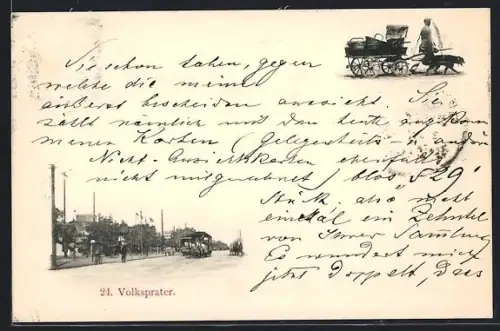 Sie schon haben, gegen
welche die meine
äußerst bescheiden aussieht. Sie
zählt nämlich mit den heute angekom
menen Karten (Gelegenheits- u. andere
Nicht-Ansichtskarten ebenfalls
nicht mitgerechnet) blos 529
Stück, also nicht
einmal ein Zehntel
von Ihrer Sammlung
Es wundert mich
jetzt doppelt, dass
24. Volksprater.